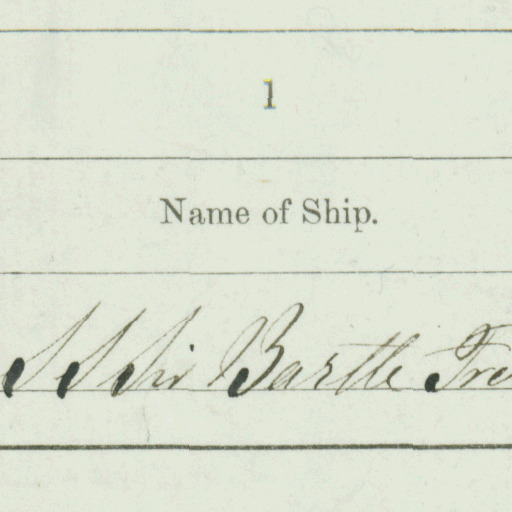 1
Name of Ship.
S S Sir Bartle Fre